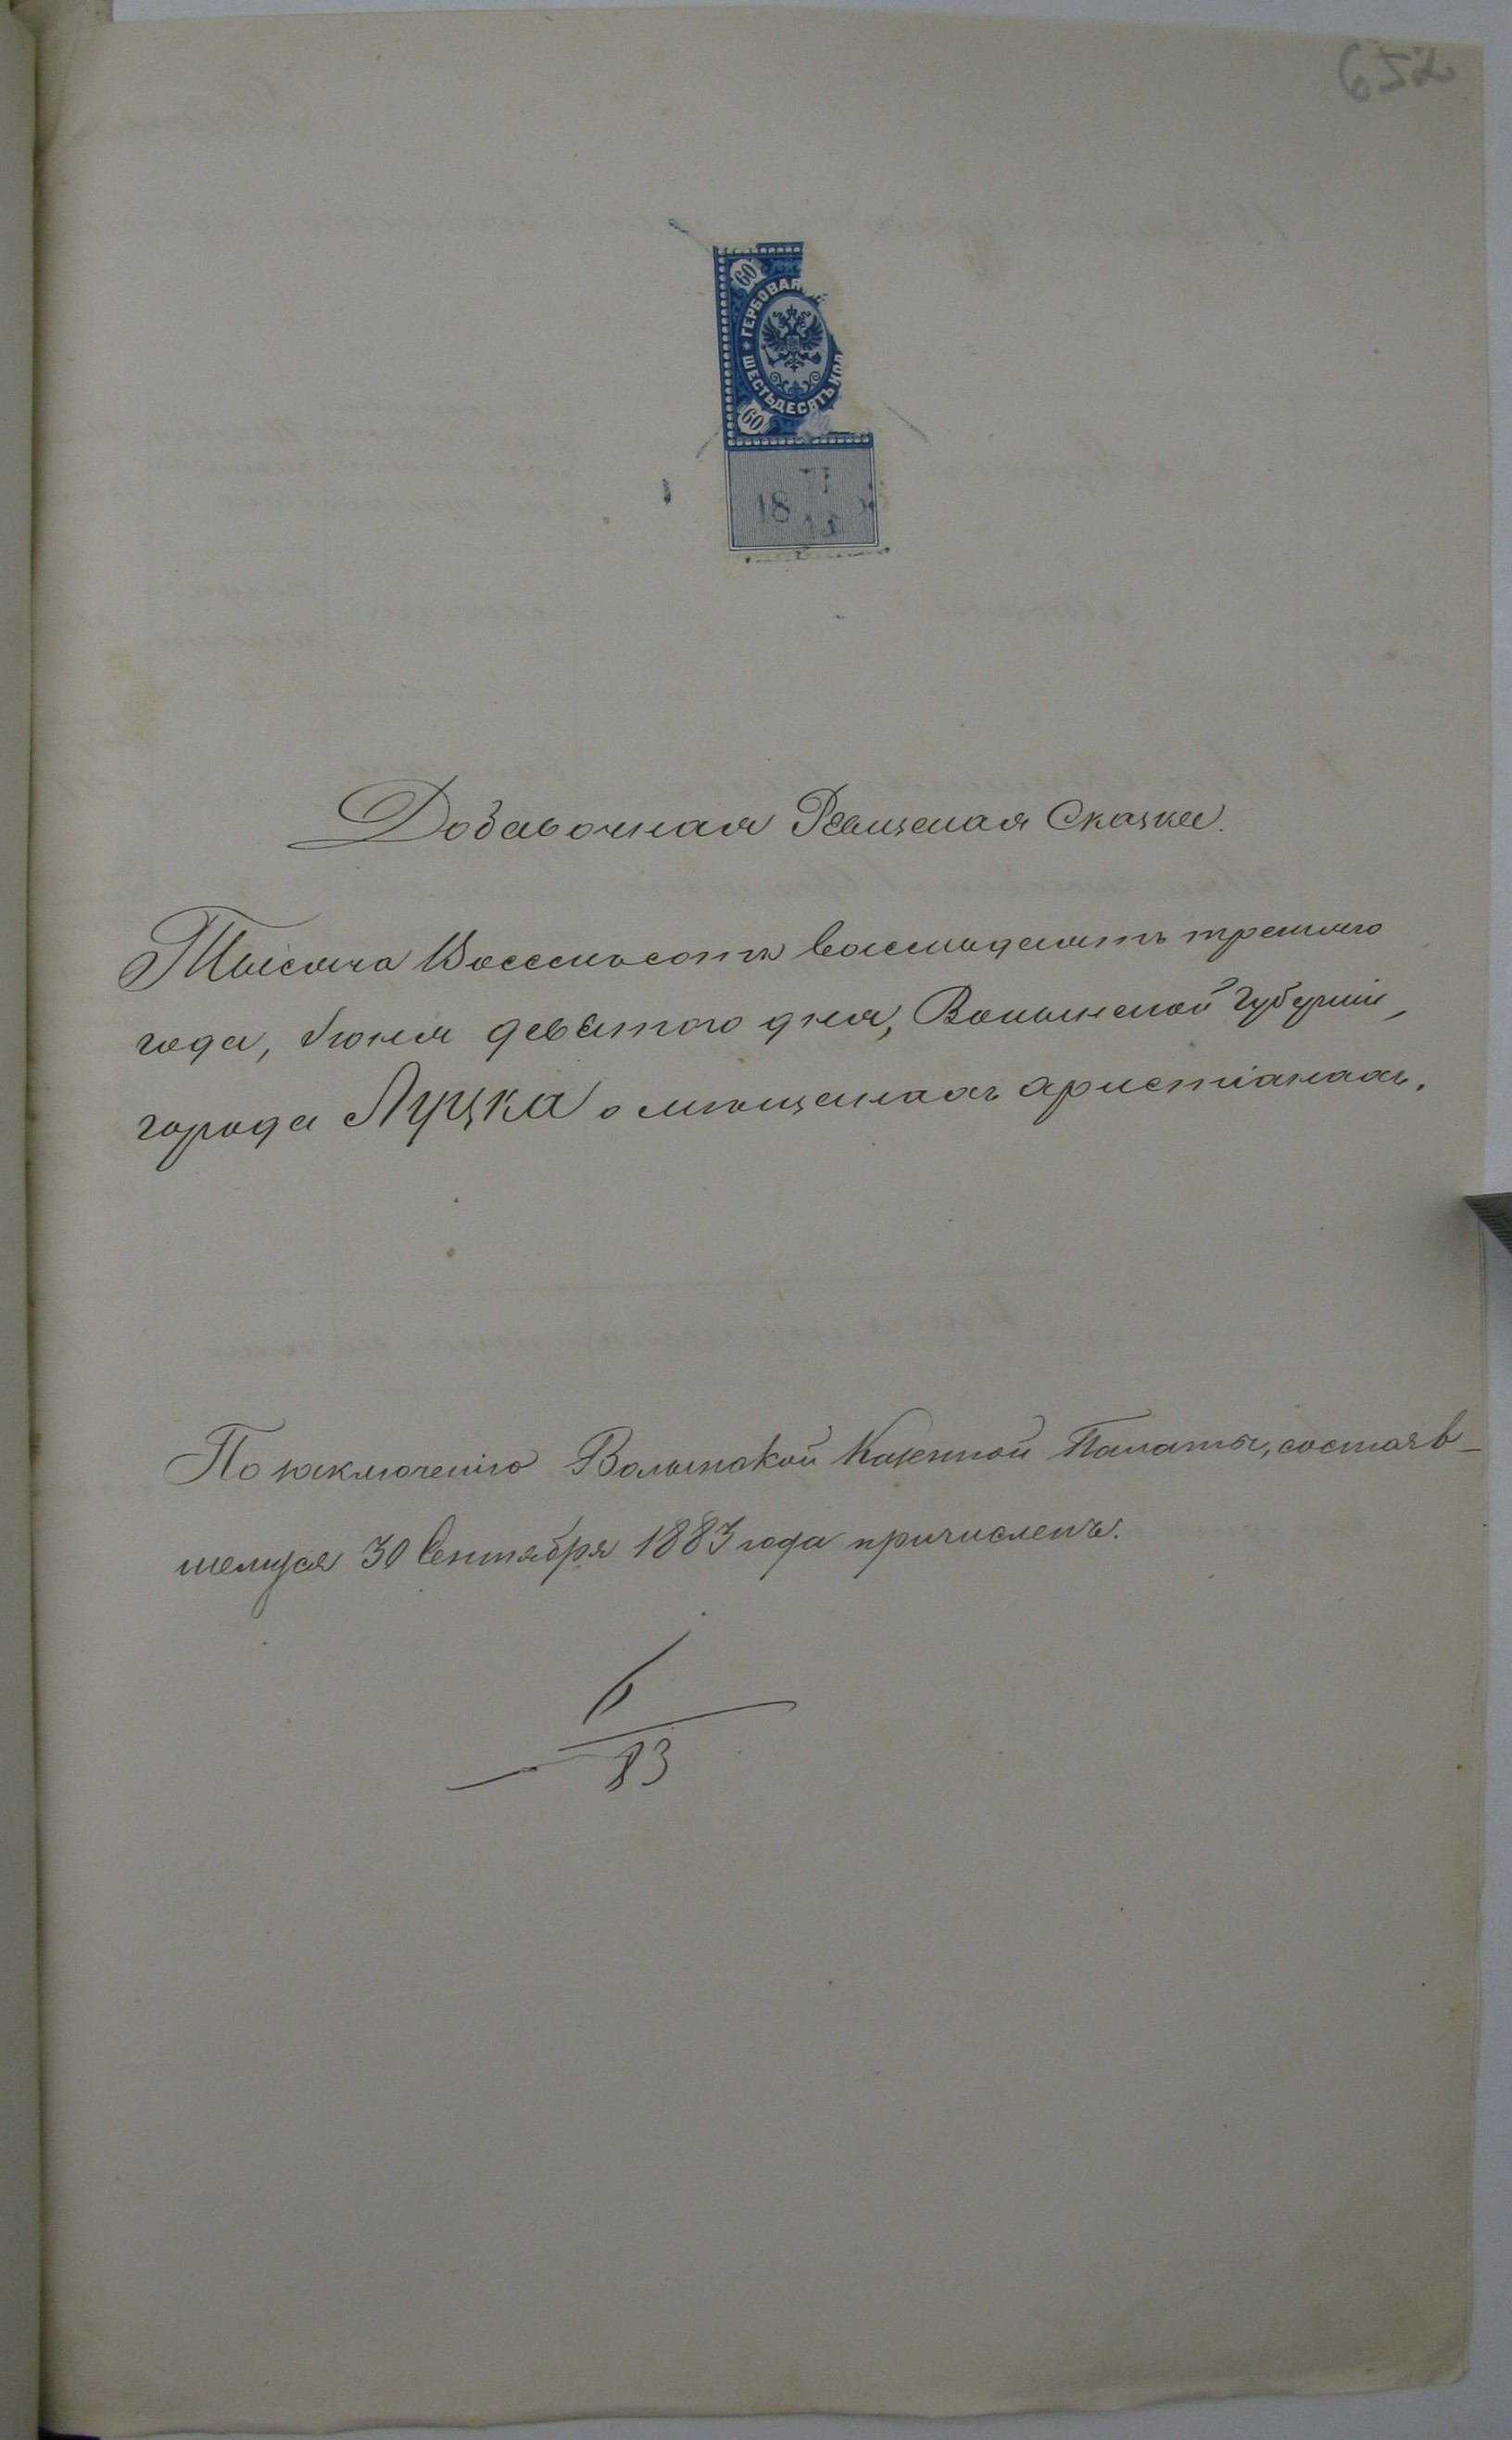 652
60
ГЕРБОВАЯ
ШЕСТЬДЕСЯТЪ КОП
60
18
Добавочная Ревизская Сказка.
Тысяча Восемьсотъ восемьдесятъ третьяго
года, Іюня девятого дня, Волынской Губерніи,
города Луцка о мѣщанахъ христіанахъ.
По заключенію Волынской Казенной Палаты, состояв-
шемуся 30 Сентября 1883 года причисленъ.
83